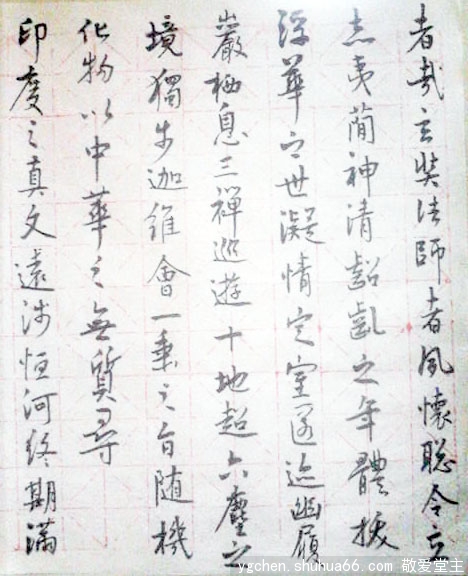 者哉玄奘法師者夙懷聰令立
志夷蕳神清齠齔之年體拔
浮華之世凝情定室匿迹幽
巖栖息三禪巡遊十地超六塵之
境獨步迦維會一乘之旨随機
化物以中華之無質尋
印度之真文遠涉恒河終期滿
ygchen.shuhua66.com 敬爱堂主